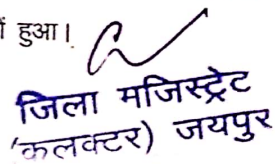 हुआ।
जिला मजिस्ट्रेट
'कलक्टर) जयपुर